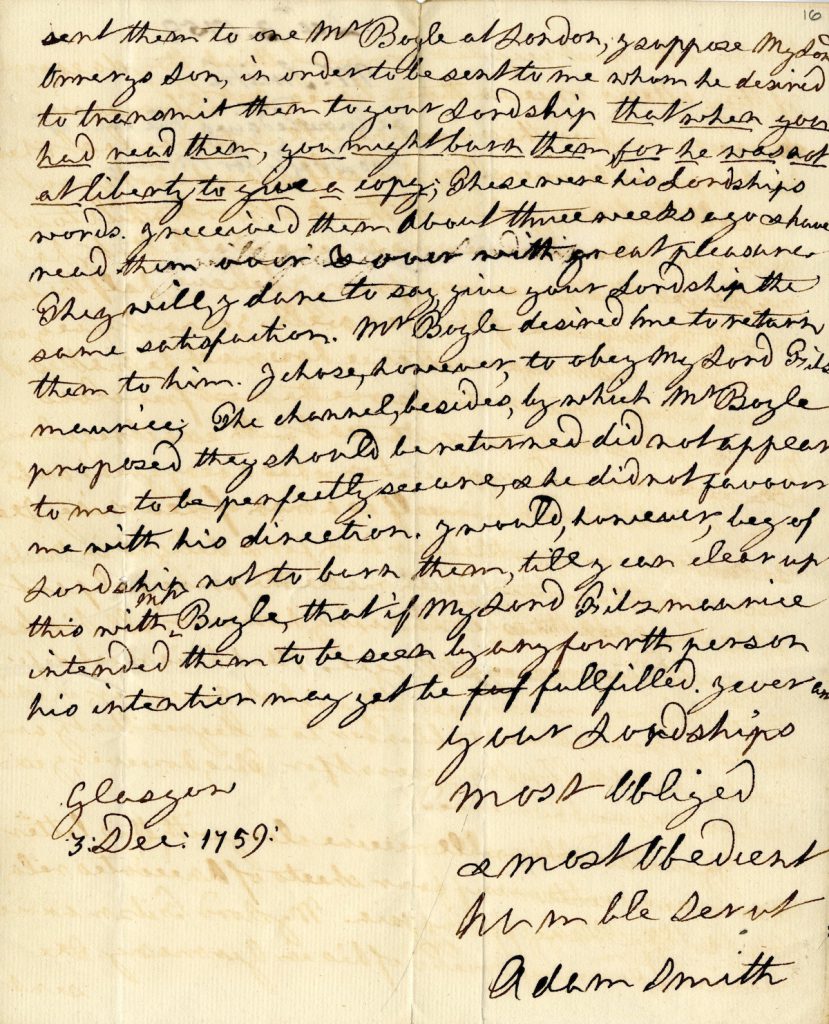 16
sent them to one Mr Boyle at London, I suppose My Lord
Orrerys Son, in order to be sent to me whom he desired
to transmit them to your Lordship that when you
had read them, you might burn them for he was not
at liberty to give a copy; These were his Lordships
words. I received them about three weeks ago & have
read them over & over with great pleasure.
They will, I dare to say, give your Lordship the
same satisfaction. Mr Boyle desired me to return
them to him. I chose, however, to obey My Lord Fitz
maurice; The channel, besides, by which Mr Boyle
proposed they should be returned did not appear
to me to be perfectly secure, & he did not favour
me with his direction. I would, however, beg of
Lordship not to burn them, till I can clear up
this with Mr Boyle, that if My Lord Fitzmaurice
intended them to be seen by any fourth person
his intention may yet be ful fullfilled. I ever am
your Lordships
most Obliged
& most Obedient
humble Servt
Adam Smith
Glasgow
3: Dec: 1759: